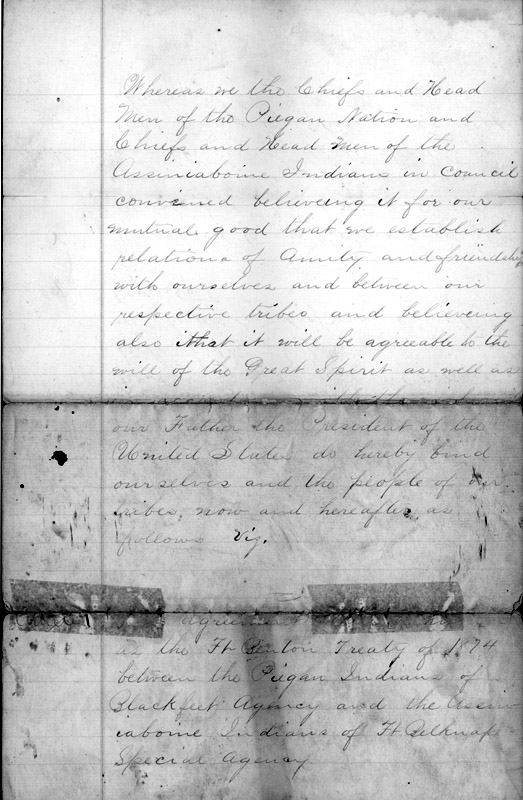 Whereas we the Chiefs and Head
Men of the Piegan Nation and
Chiefs and Head Men of the
Assiniaboine Indians in Council
convened believeing it for our
mutual good that we establish
relations of Amity and friendship
with ourselves and between our
respective tribes and believeing
also that it will be agreeable to the
will of the Great Spirit as well as
our Father the President of the
United States do hereby bind
ourselves and the people of our
tribes, now and hereafter as
follows Viz.
agreement
as the Ft Benton Treaty of 1874
between the Piegan Indians of
Blackfeet Agency and the Assin
iaboine Indians of Ft Belknap
Special Agency